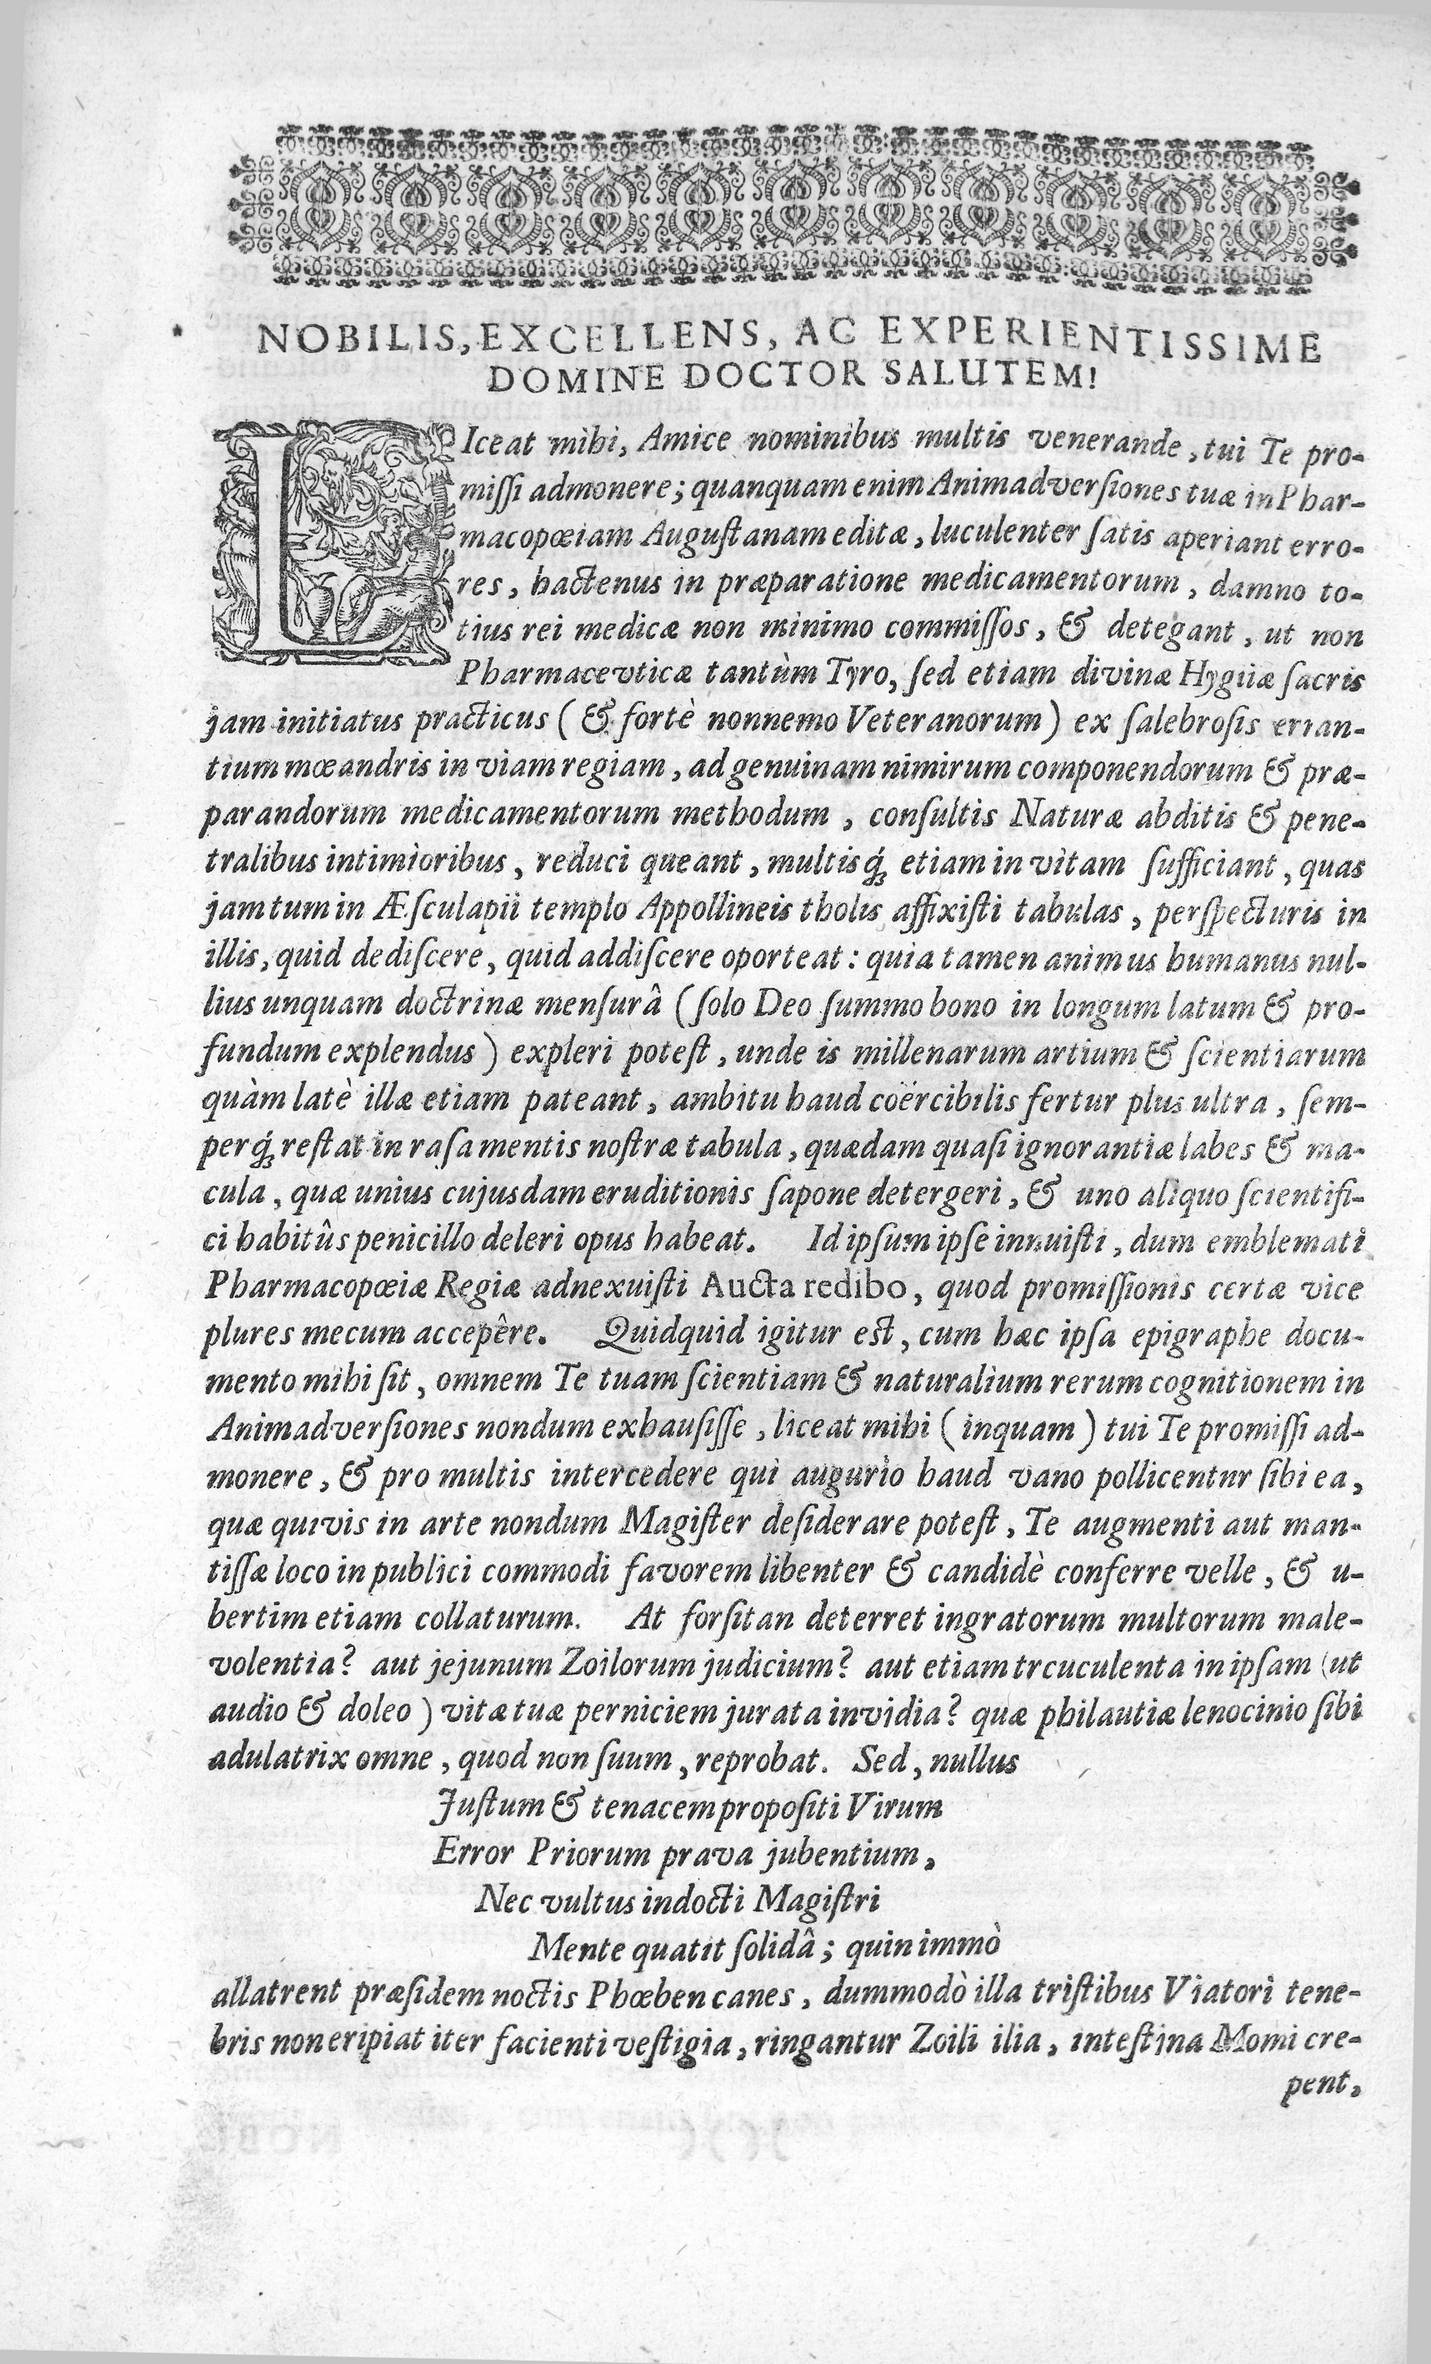 NOBILIS, EXCELLENS, AC EXPERIENTISSIME
DOMINE DOCTOR SALUTEM!
LIceat mihi, Amice nominibus multis venerande, tui Te pro-
miſſi admonere; quanquam enim Animadverſiones tuæ in Phar-
macopœiam Auguſtanam editæ, luculenter ſatis aperiant erro-
res, hactenus in præparatione medicamentorum, damno to-
tius rei medicæ non minimo commiſſos, & detegant, ut non
Pharmacevticæ tantùm Tyro, ſed etiam divinæ Hygiiæ ſacris
jam initiatus practicus (& fortè nonnemo Veteranorum) ex ſalebroſis erran-
tium mœandris in viam regiam, ad genuinam nimirum componendorum & præ-
parandorum medicamentorum methodum, conſultis Naturæ abditis & pene-
tralibus intimioribus, reduci queant, multisq́; etiam in vitam ſufficiant, quas
jam tum in Æſculapii templo Appollineis tholis affixiſti tabulas, perſpecturis in
illis, quid dediſcere, quid addiſcere oporteat: quia tamen animus humanus nul-
lius unquam doctrinæ menſurâ (ſolo Deo ſummo bono in longum latum & pro-
fundum explendus) expleri poteſt, unde is millenarum artium & ſcientiarum
quàm latè illæ etiam pateant, ambitu haud coërcibilis fertur plus ultra, ſem-
perq́; reſtat in raſa mentis noſtræ tabula, quædam quaſi ignorantiæ labes & ma-
cula, quæ unius cujusdam eruditionis ſapone detergeri, & uno aliquo ſcientifi-
ci habitûs penicillo deleri opus habeat. Id ipſum ipſe innuiſti, dum emblemati
Pharmacopœiæ Regiæ adnexuiſti Aucta redibo, quod promiſſionis certæ vice
plures mecum accepêre. Quidquid igitur eſt, cum hæc ipſa epigraphe docu-
mento mihi ſit, omnem Te tuam ſcientiam & naturalium rerum cognitionem in
Animadverſiones nondum exhauſiſſe, liceat mihi (inquam) tui Te promiſſi ad-
monere, & pro multis intercedere qui augurio haud vano pollicentur ſibi ea,
quæ quivis in arte nondum Magiſter deſiderare poteſt, Te augmenti aut man-
tiſſæ loco in publici commodi favorem libenter & candidè conferre velle, & u-
bertim etiam collaturum. At forſitan deterret ingratorum multorum male-
volentia? aut jejunum Zoilorum judicium? aut etiam trcuculenta in ipſam (ut
audio & doleo) vitæ tuæ perniciem jurata invidia? quæ philautiæ lenocinio ſibi
adulatrix omne, quod non ſuum, reprobat. Sed, nullus
Juſtum & tenacem propoſiti Virum
Error Priorum prava jubentium,
Nec vultus indocti Magiſtri
Mente quatit ſolidâ; quin immò
allatrent præſidem noctis Phœben canes, dummodò illa triſtibus Viatori tene-
bris non eripiat iter facienti veſtigia, ringantur Zoili ilia, inteſtina Momi cre-
pent,